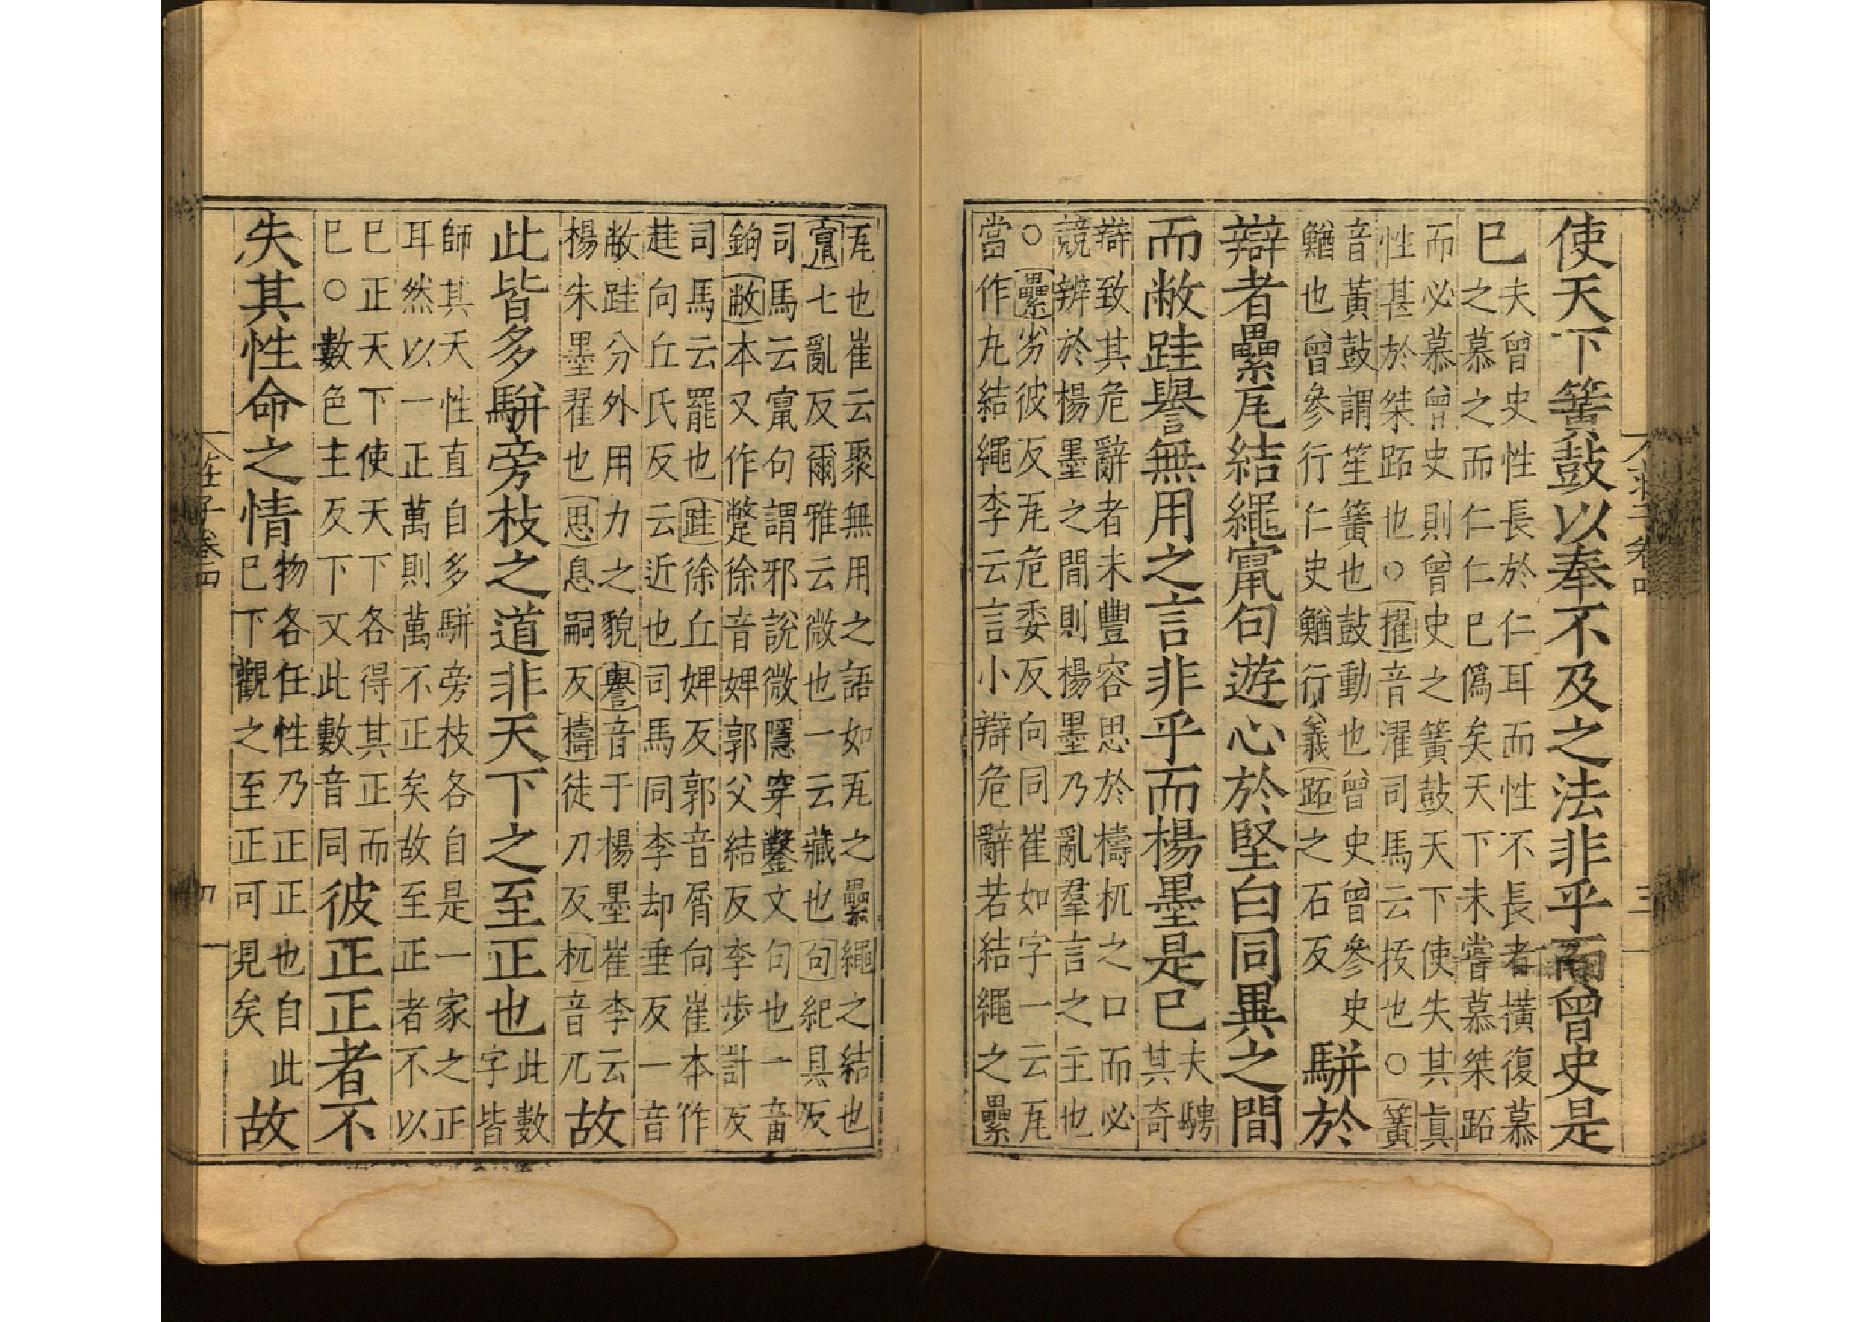 使天下簧鼓以奉不及之法非乎而曾史是
已夫曾史性長於仁耳而性不長者橫復慕
之慕之而仁仁已僞矣天下未嘗慕桀跖
而必慕曾史則曾史之簧鼓天下使失其眞
性甚於桀跖也○擢音濯司馬云拔也○簧
音黃鼓謂笙簧也鼓動也曾史曾參史
鰌也曾參行仁史鰌行義跖之石反駢於
辯者纍瓦結繩竄句遊心於堅白同異之間
而敝跬譽無用之言非乎而楊墨是已夫騁
其奇
辯致其危辭者未豐容思於檮杌之口而必
競辨於楊墨之間則楊墨乃亂羣言之主也
○纍劣彼反瓦危委反向同崔如字一云瓦
當作丸結繩李云言小辯危辭若結繩之纍
瓦也崔云聚無用之語如瓦之纍繩之結也
竄七亂反爾雅云微也一云藏也句紀具反
司馬云竄句謂邪說微隱穿鑿文句也一音
鉤敝本又作蹩徐音婢郭父結反李步計反
司馬云罷也跬徐丘婢反郭音屑向崔本作
趌向丘氏反云近也司馬同李却垂反一音
敝跬分外用力之貌譽音于楊墨崔李云
楊朱墨翟也思息嗣反檮徒刀反杌音兀故
此皆多駢旁枝之道非天下之至正也此數
字皆
師其天性直自多駢旁枝各自是一家之正
耳然以一正萬則萬不正矣故至正者不以
已正天下使天下各得其正而
已○數色主反下文此數音同彼正正者不
失其性命之情物各任性乃正正也自此
已下觀之至正可見矣故
莊子卷四
三
莊子卷四
四